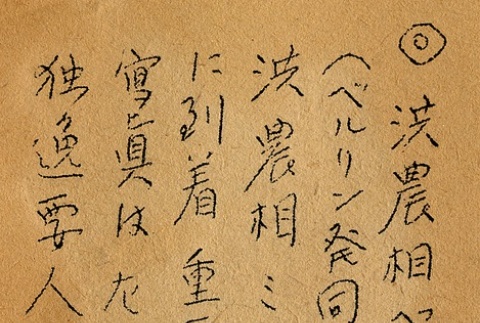 ◎洪農相
(ベルリン発同
洪農相ミ
に到着重
寫真は左
独逸要人